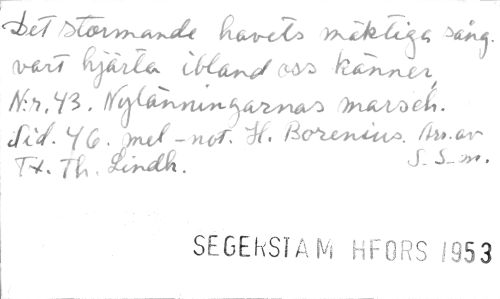 Det stormande havets mäktiga sång.
vart hjärta ibland oss känner,
N:r. 43. Nylänningarnas marsch.
Sid. 46. mel-not. H. Borenius. Arr. av
Tx. Th. Lindh. S. S-m.
SEGERSTAM HFORS 1953